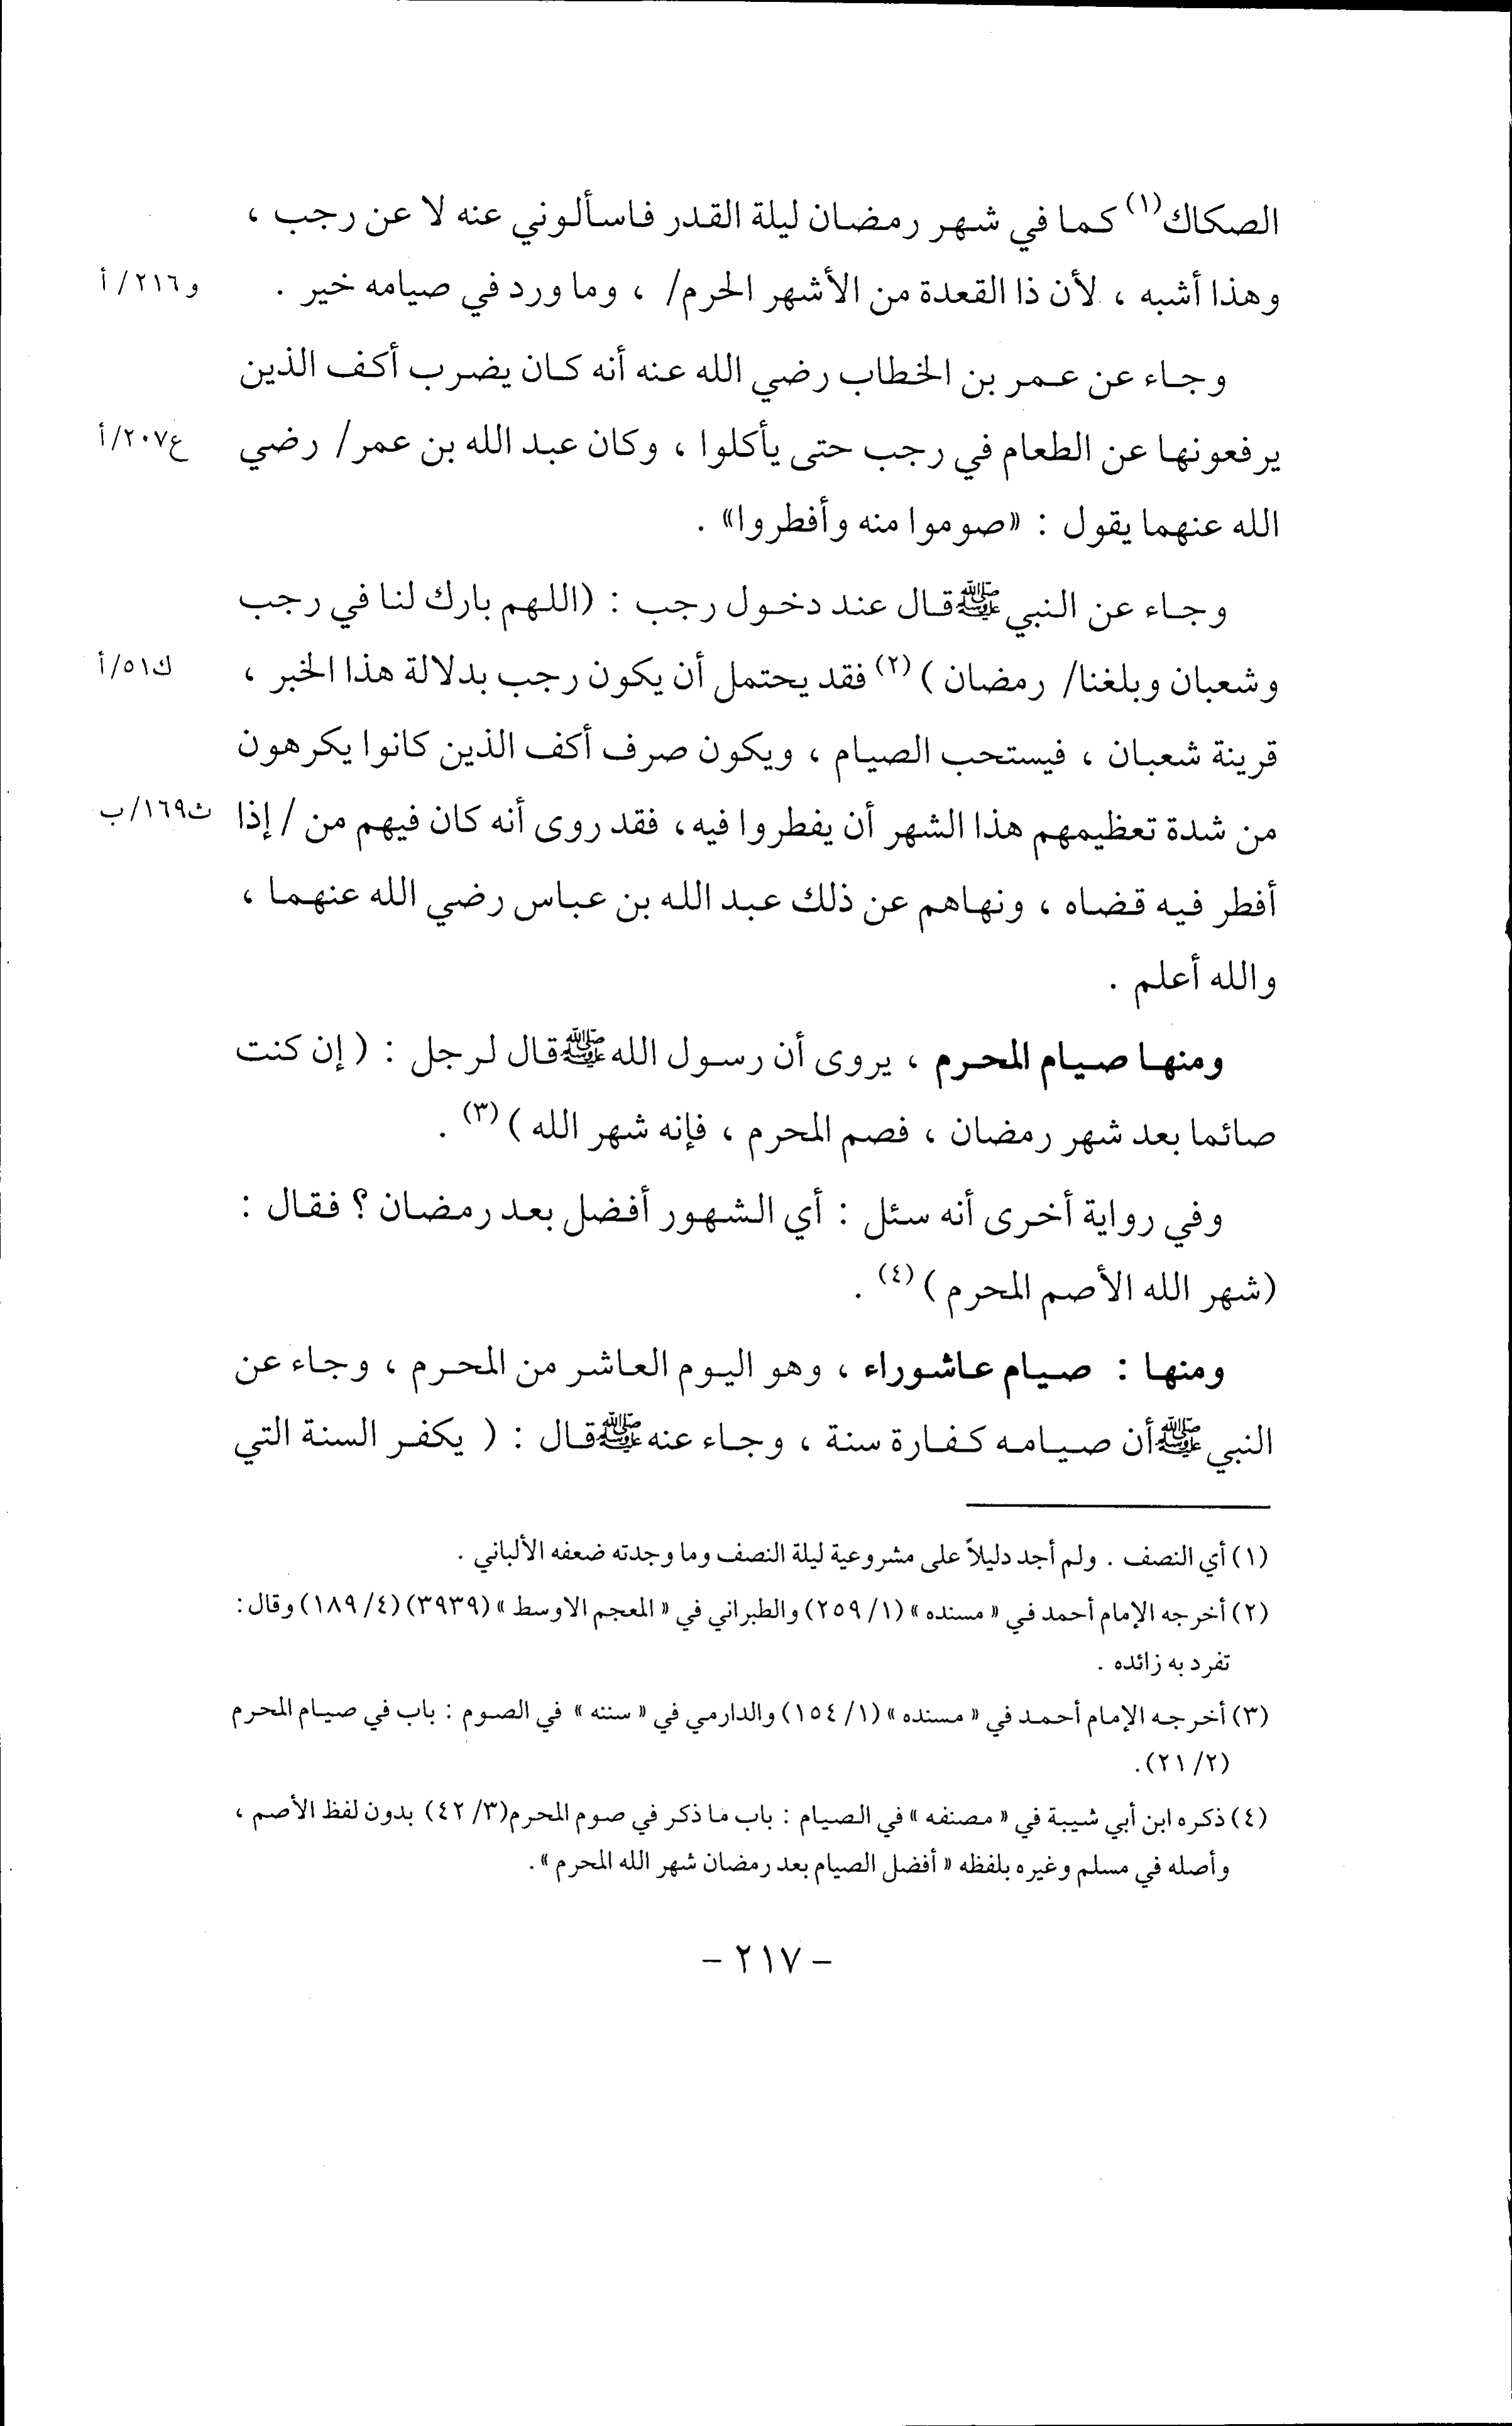 الصكاك(١) كما في شهر رمضان ليلة القدر فاسألوني عنه لا عن رجب ،
وهذا أشبه ، لأن ذا القعدة من الأشهر الحرم/ ، وما ورد في صيامه خير .
و٢١٦/ أ
وجاء عن عمر بن الخطاب رضي الله عنه أنه كان يضرب أكف الذين
يرفعونها عن الطعام في رجب حتى يأكلوا ، وكان عبد الله بن عمر/ رضي
ع٢٠٧/أ
الله عنهما يقول : «صوموا منه وأفطروا» .
وجاء عن النبي ﷺ قال عند دخول رجب : (اللهم بارك لنا في رجب
وشعبان وبلغنا/ رمضان )(٢) فقد يحتمل أن يكون رجب بدلالة هذا الخبر ،
ك٥١/أ
قرينة شعبان ، فيستحب الصيام ، ويكون صرف أكف الذين كانوا يكرهون
من شدة تعظيمهم هذا الشهر أن يفطروا فيه، فقد روى أنه كان فيهم من / إذا
ث١٦٩/ب
أفطر فيه قضاه ، ونهاهم عن ذلك عبد الله بن عباس رضي الله عنهما ،
والله أعلم .
ومنها صيام المحرم ، يروى أن رسول الله ﷺ قال لرجل : ( إن كنت
صائما بعد شهر رمضان ، فصم المحرم ، فإنه شهر الله )(٣) .
وفي رواية أخرى أنه سئل : أي الشهور أفضل بعد رمضان ؟ فقال :
(شهر الله الأصم المحرم )(٤) .
ومنها : صيام عاشوراء ، وهو اليوم العاشر من المحرم ، وجاء عن
النبي ﷺ أن صيامه كفارة سنة ، وجاء عنه ﷺ قال : ( يكفر السنة التي
(١) أي النصف . ولم أجد دليلاً على مشروعية ليلة النصف وما وجدته ضعفه الألباني .
(٢) أخرجه الإمام أحمد في « مسنده » (١/ ٢٥٩) والطبراني في « المعجم الاوسط » (٣٩٣٩) (٤/ ١٨٩) وقال :
تفرد به زائده .
(٣) أخرجه الإمام أحمد في « مسنده » (١/ ١٥٤) والدارمي في « سننه » في الصوم : باب في صيام المحرم
(٢/ ٢١).
(٤) ذكره ابن أبي شيبة في « مصنفه » في الصيام : باب ما ذكر في صوم المحرم(٣/ ٤٢) بدون لفظ الأصم ،
وأصله في مسلم وغيره بلفظه « أفضل الصيام بعد رمضان شهر الله المحرم ».
- ٢١٧ -